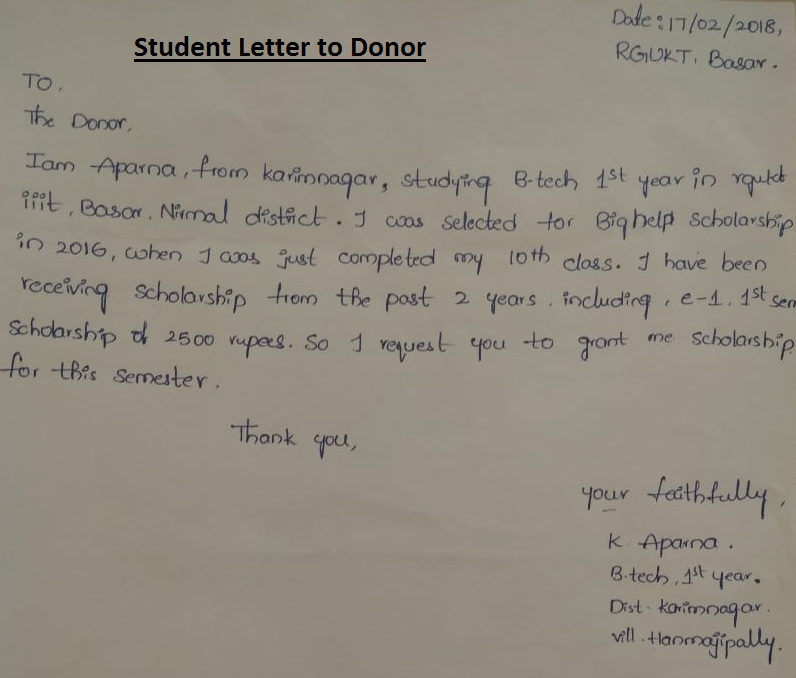 Student Letter to Donor
Date: 17/02/2018,
RGUKT, Basar.
TO,
The Donor,
Iam Aparna, from karimnagar, studying B-tech 1st year in rgukt
iiit, Basar, Nirmal district. I was selected for Bighelp scholarship
in 2016, when I was just completed my 10th class. I have been
receiving scholarship from the past 2 years, including, e-1, 1st sem
scholarship of 2500 rupees. So I request you to grant me scholarship
for this semester.
Thank you,
your faithfully,
K. Aparna.
B.tech, 1st year.
Dist. karimnagar.
vill. Hanmajipally.